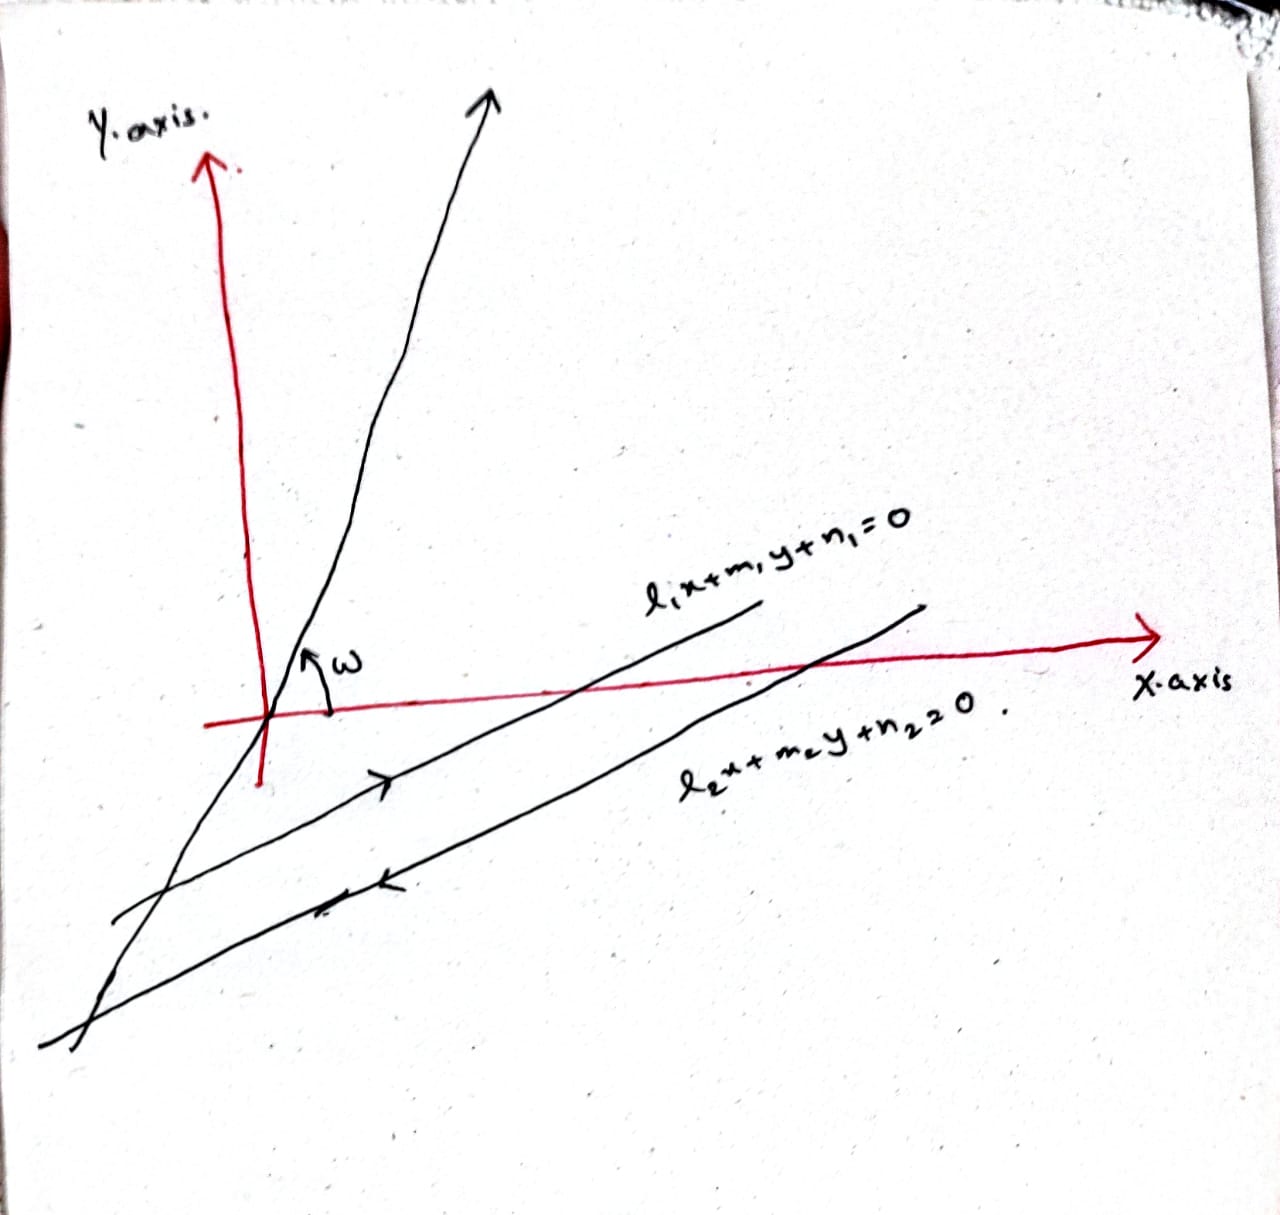 Y.axis.
l₁x+m₁y+n₁=0
ω
X.axis
l₂x+m₂y+n₂=0.